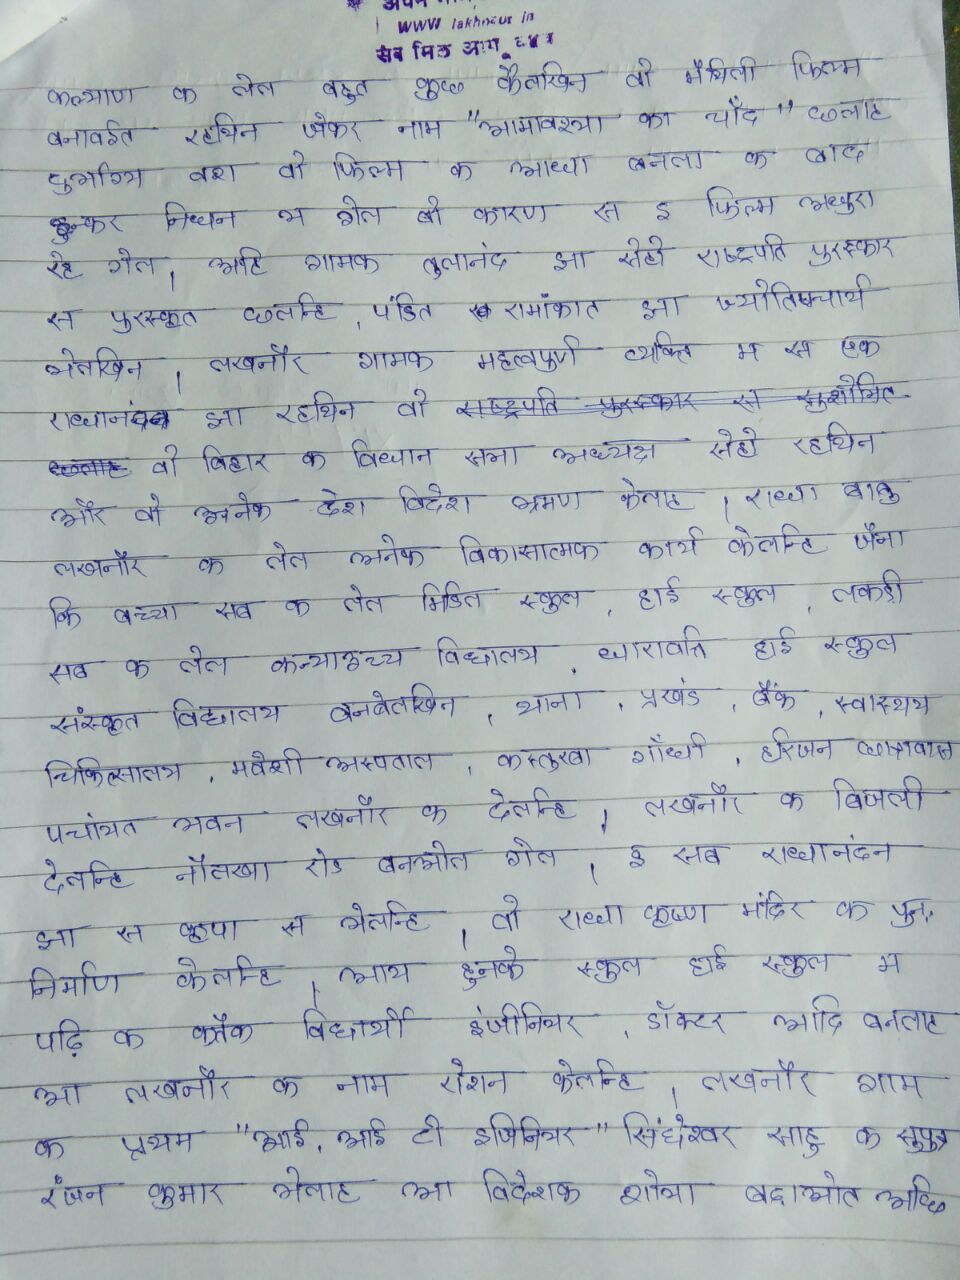 www lakhnaur in
सब मिल आगू
कल्याण क लेल बहुत कुछ कैलखिन वो मैथिली फिल्म
बनावईत रहथिन जेकर नाम "आमावश्या का चाँद" छलाह
दुर्भाग्य वश वो फिल्म क आधा बनला क बाद
हुनकर निधन भ गेल वो कारण स इ फिल्म अधुरा
रहे गेल, अहि गामक तुलानंद झा सेहो राष्ट्रपति पुरस्कार
स पुरस्कृत छलन्हि, पंडित रामांकात झा ज्योतिष्चार्य
भेलखिन, लखनौर गामक महत्वपुर्ण व्यक्ति म स एक
राधानंदन झा रहथिन वो राष्ट्रपति पुरस्कार स सुशोभित
छलाह वो बिहार क विधान सभा अध्यक्ष सेहो रहथिन
और वो अनेक देश विदेश भ्रमण केलाह, राधा बाबु
लखनौर क लेल अनेक विकासात्मक कार्य केलन्हि जेना
कि बच्चा सब क लेल मिडिल स्कुल, हाई स्कुल, लकड़ी
सब क लेल कन्याउच्च विद्यालय, धारावति हाई स्कुल
संस्कृत विद्यालय बनबेलखिन, थाना, प्रखंड, बैंक, स्वास्थय
चिकित्सालय, मवेशी अस्पताल, कस्तुरबा गाँधी, हरिजन छात्रावास
पचांयत भवन लखनौर क देलन्हि, लखनौर क बिजली
देलन्हि नौलखा रोड बनओल गेल, इ सब राधानंदन
झा स कृपा स भेलन्हि, वो राधा कृष्ण मंदिर क पुनः
निर्माण केलन्हि, आय हुनके स्कुल हाई स्कुल म
पढ़ि क कतेक विद्यार्थी इंजीनियर, डॉक्टर आदि बनलाह
आ लखनौर क नाम रोशन केलन्हि, लखनौर गाम
क प्रथम "आई. आई टी इंजिनियर" सिंघेश्वर साहु क सुपुत्र
रंजन कुमार भेलाह आ विदेशक शोभा बढ़ाओल अछि